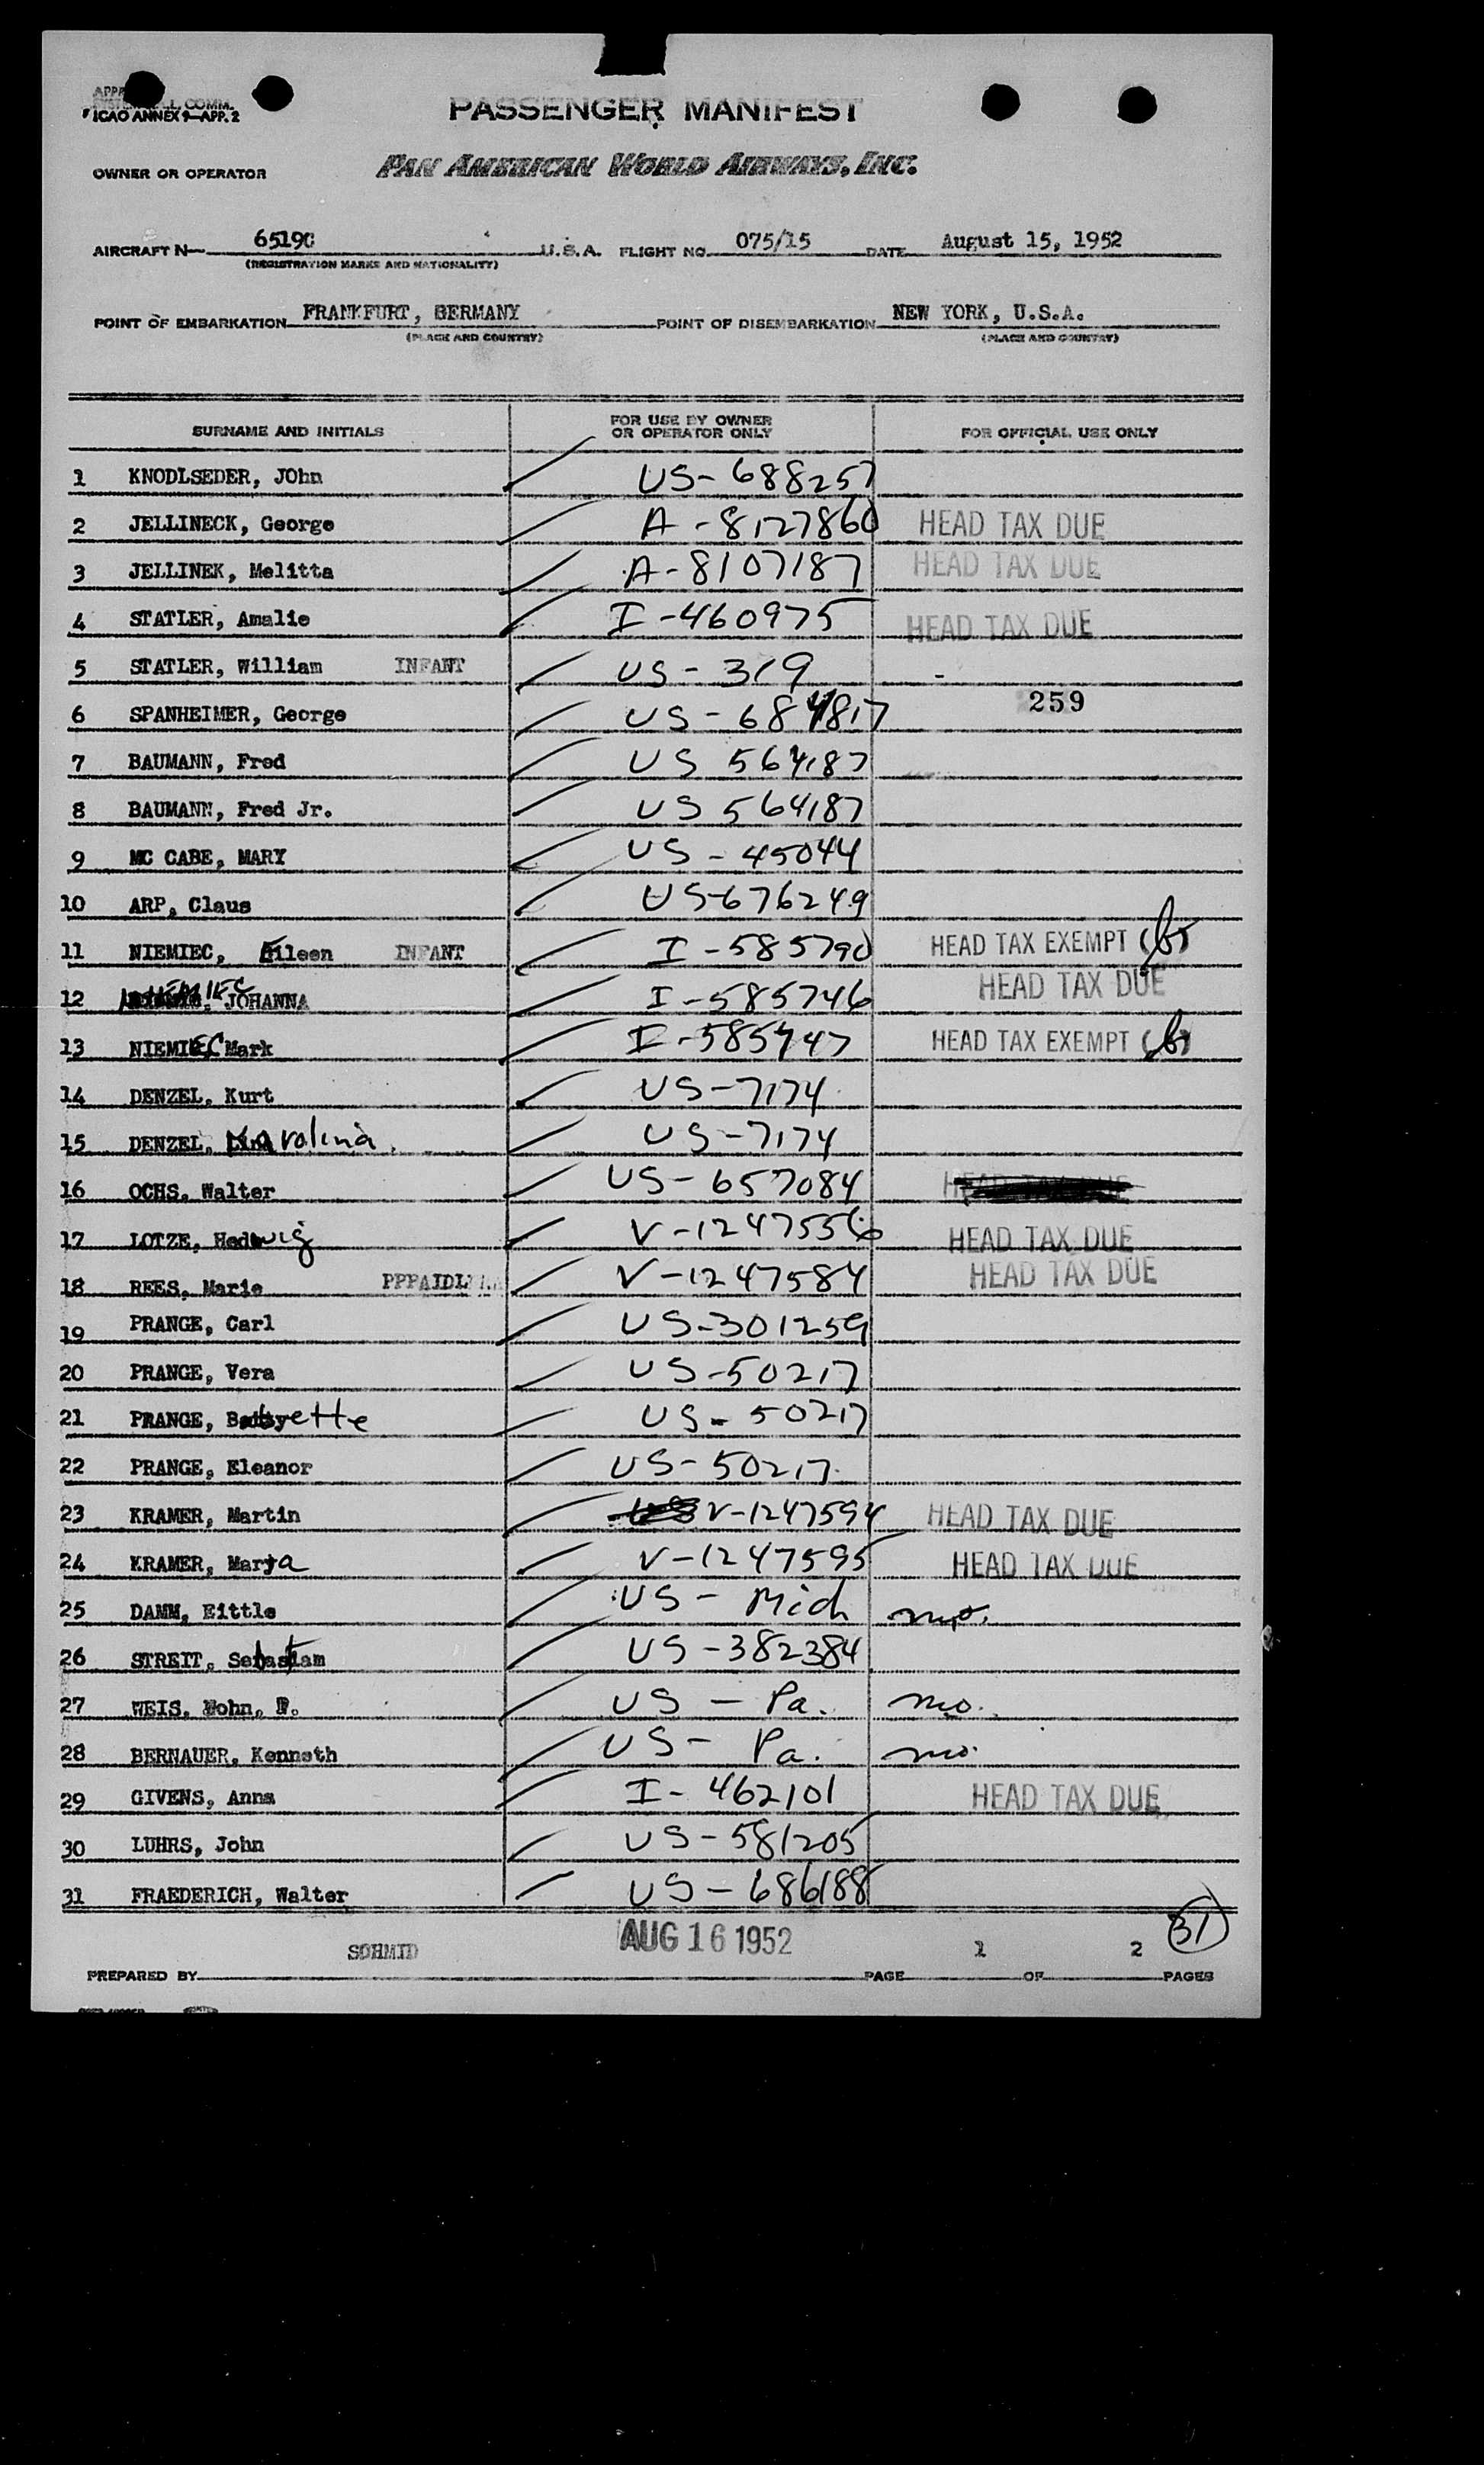 ICAO ANNEX 9—APP. 2
PASSENGER MANIFEST
OWNER OR OPERATOR PAN AMERICAN WORLD AIRWAYS, INC.
AIRCRAFT N— 6519C U.S.A. FLIGHT NO. 075/15 DATE August 15, 1952
(REGISTRATION MARKS AND NATIONALITY)
POINT OF EMBARKATION FRANKFURT, GERMANY POINT OF DISEMBARKATION NEW YORK, U.S.A.
(PLACE AND COUNTRY) (PLACE AND COUNTRY)
SURNAME AND INITIALS FOR USE BY OWNER OR OPERATOR ONLY FOR OFFICIAL USE ONLY
1 KNODLSEDER, JOhn US-688257
2 JELLINECK, George A-8127860 HEAD TAX DUE
3 JELLINEK, Melitta A-8107187 HEAD TAX DUE
4 STATLER, Amalie I-460975 HEAD TAX DUE
5 STATLER, William INFANT US-319 -
259
6 SPANHEIMER, George US-684817
7 BAUMANN, Fred US 564187
8 BAUMANN, Fred Jr. US 564187
9 MC CABE, MARY US-45044
10 ARP, Claus US-676249
11 NIEMIEC, Eileen INFANT I-585790 HEAD TAX EXEMPT (b)
12 NIEMIEC, JOHANNA I-585746 HEAD TAX DUE
13 NIEMIEC Mark I-585747 HEAD TAX EXEMPT (b)
14 DENZEL, Kurt US-7174
15 DENZEL, Karolina US-7174
16 OCHS, Walter US-657084 HEAD TAX DUE
17 LOTZE, Hedwig V-1247556 HEAD TAX DUE
18 REES, Marie V-1247584 HEAD TAX DUE
19 PRANGE, Carl US-301259
20 PRANGE, Vera US-50217
21 PRANGE, Babyette US-50217
22 PRANGE, Eleanor US-50217
23 KRAMER, Martin V-1247594 HEAD TAX DUE
24 KRAMER, Marja V-1247595 HEAD TAX DUE
25 DAMM, Eittle US-Mich
26 STREIT, Sebastiam US-382384
27 WEIS, US-Pa. mo.
28 BERNAUER, Kenneth US-Pa. mo.
29 GIVENS, Anna I-462101 HEAD TAX DUE
30 LUHRS, John US-581205
31 FRAEDERICH, Walter US-686188
31
PREPARED BY SCHMID AUG 16 1952 PAGE 1 OF 2 PAGES